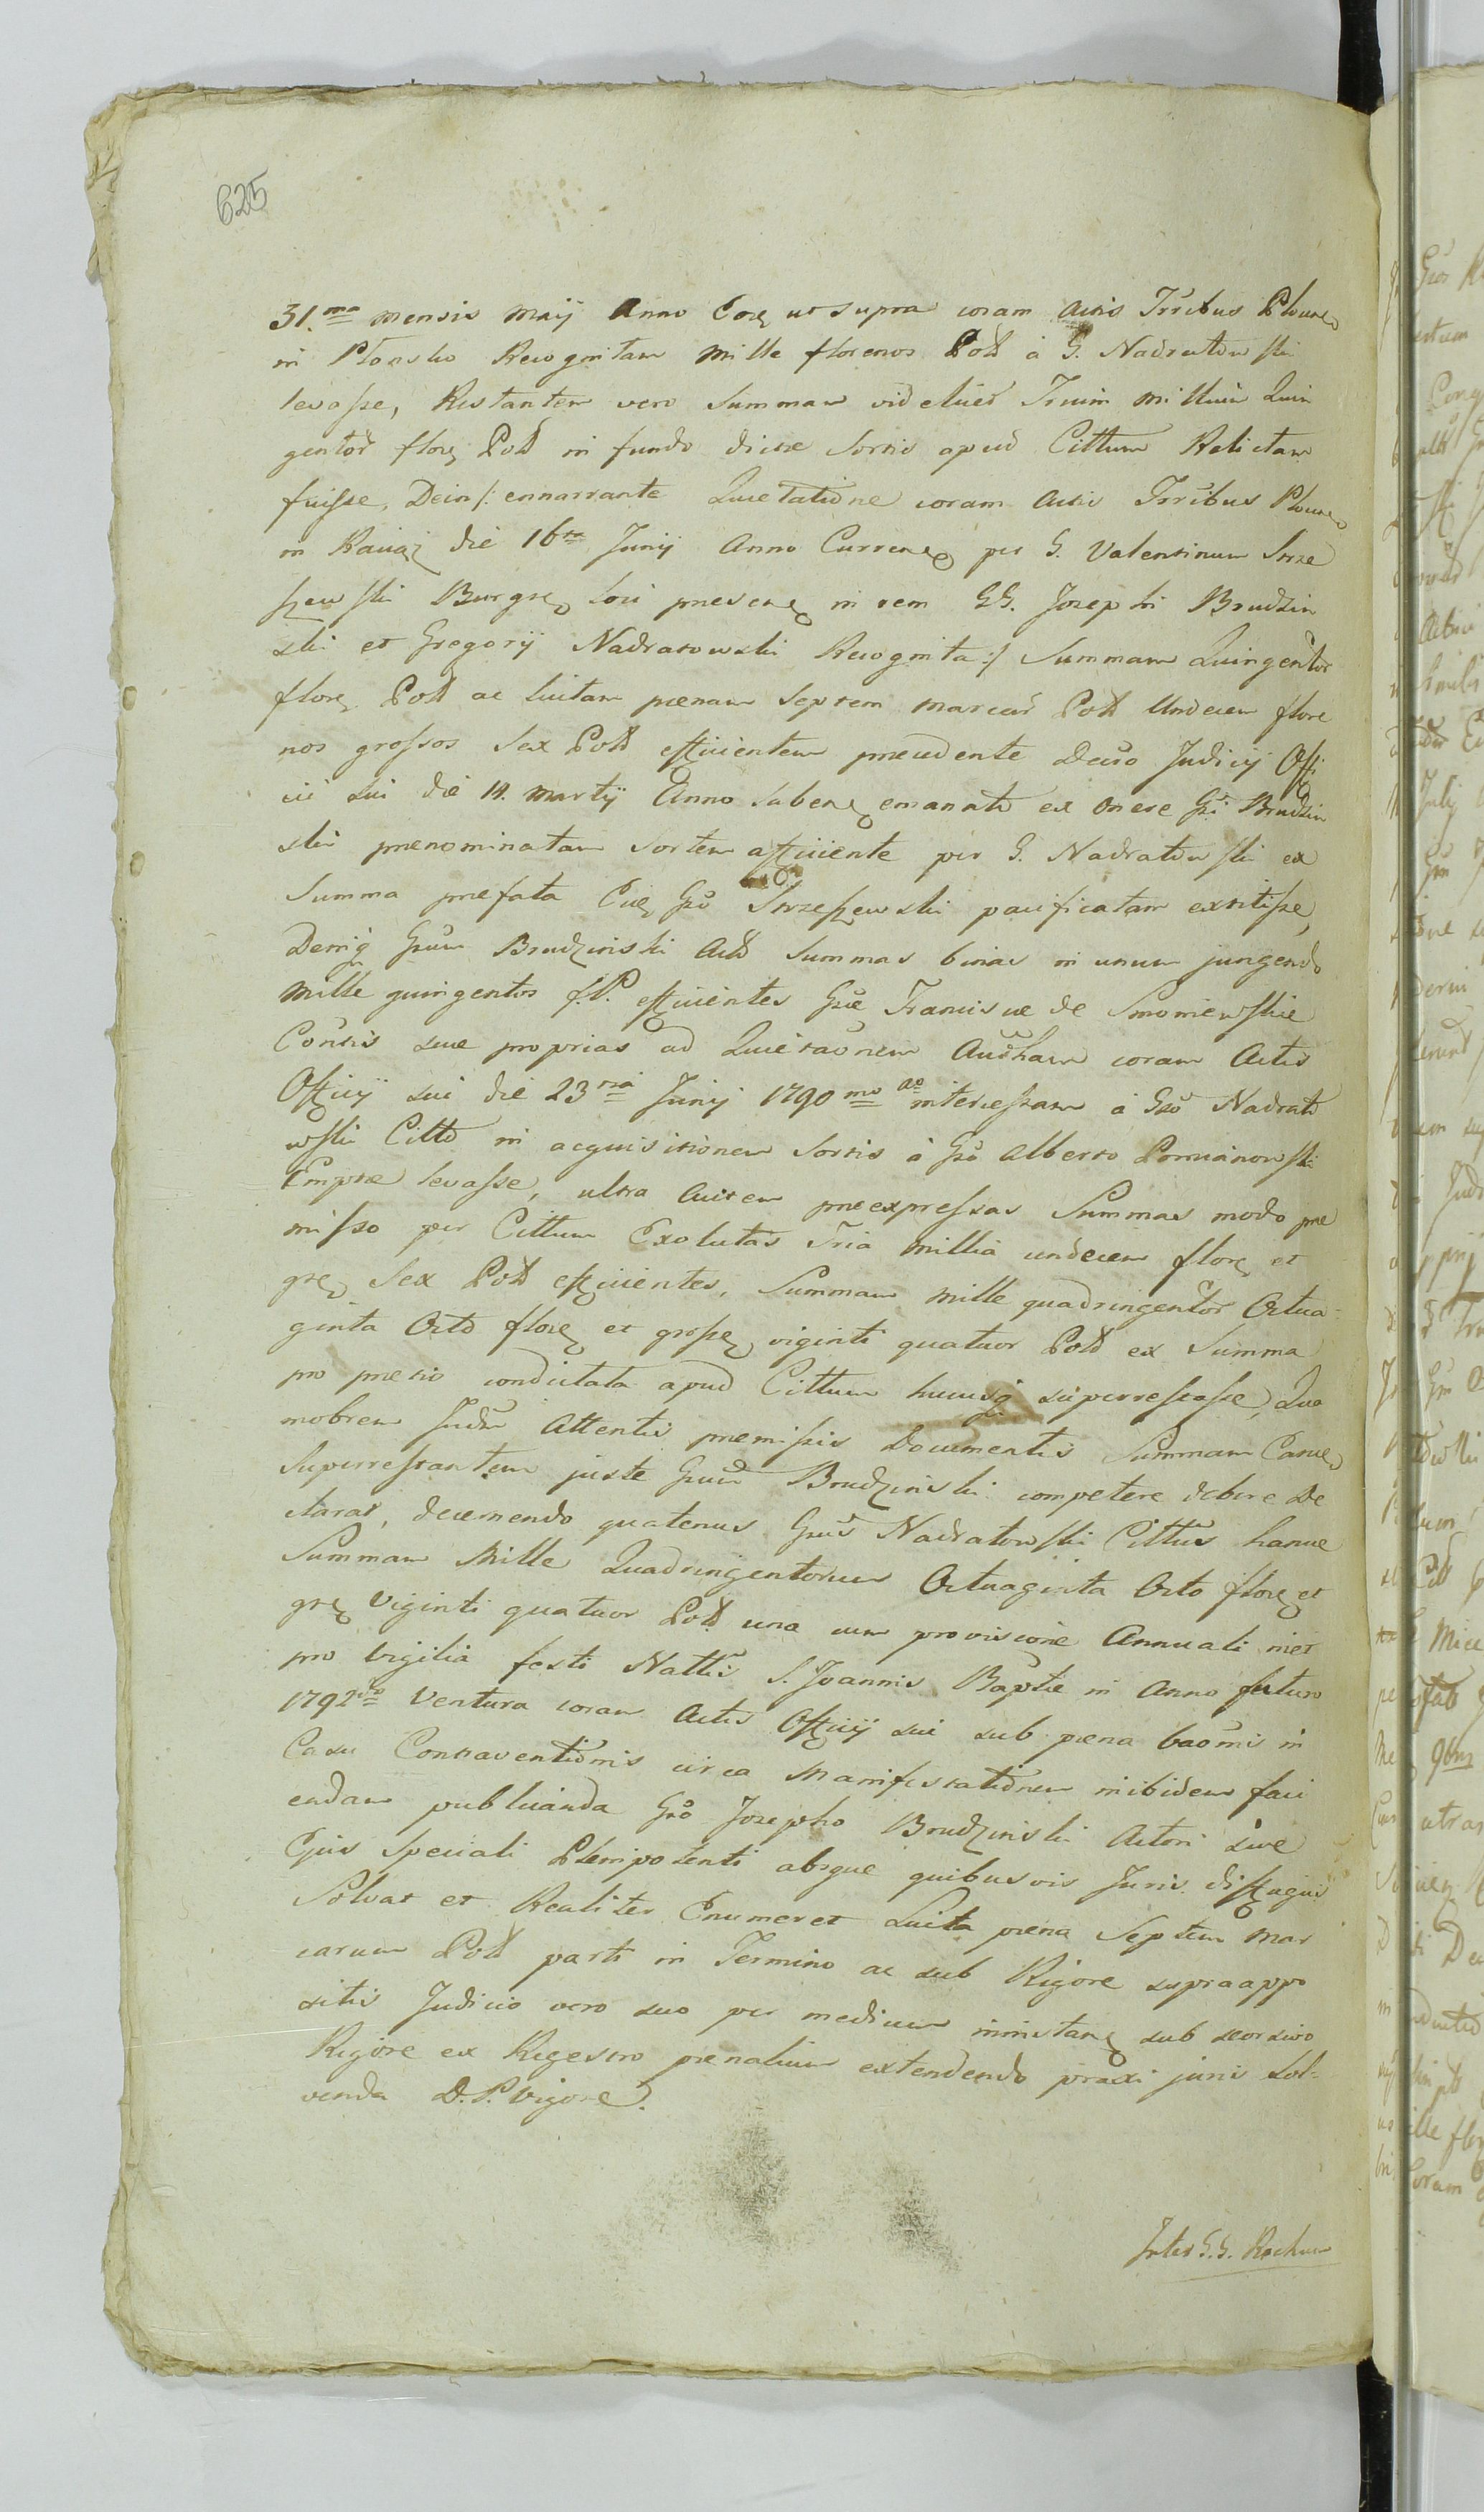 625
31.ma mensis Maij Anno Eoq ut supra coram Actis Trribus Plonen
in Płonsko Recognitam Mille florenos Poll à G. Nadratowski
levasse, Restantem vero Summam videlicet Trium Millium Quin
gentor floreq Poll in fundo dictae Sortis apud Cittum Relictam
fuisse, Dein /: ennarrante Quietatione coram Actis Trribus Plonen
in Raciąż die 16ta Junij Anno Curreneq per G. Valentinum Strze
szewski Burgreq loci praeseneq in rem GG. Josephi Brudzin
ski et Gregorij Nadratowski Recognita :/ Summam Quingentor
floreq Poll ac luitam paenam Septem marcar Poll Undecem flore
nos grossos Sex Poll efficientem praecedente Decreto Judicij Offi
cii sui die 14. Martij Anno labeneq emanato ex onere Gsi Brudzin
ski praenominatam Sortem afficiente per G. Nadratowski ex
Summa praefata Eidq Gso Strzeszewski pacificatam extitisse,
Deniq Gsum Brudzinski Actt Summas binas in unum jungendo
Mille quingentos f.P. efficientes Gsae Franciscae de Smoniewskie
Contis suae proprias ad Quietaonem Autham coram Actis
Officij sui die 23tia Junij 1790mo ao intercessam à Gso Nadrato
wski Citto in acquisitionem Sortis à Gso Alberto Pomianowski
Emptae levasse, ultra autem praeexpressas Summas modo prae
misso per Cittum Exolutas Tria Millia undecem floreq et
greq Sex Poll efficientes, Summam Mille quadringentor Octua
ginta Octo floreq et grosseq viginti quatuor Poll ex Summa
pro pretio condictata apud Cittum hucusq superrestasse, Qua
mobrem Judm Attentis praemissis Documentis Summam Eamq
Superrestantem juste Gsum Brudzinski competere debere De
clarat, decernendo quatenus Gsus Nadratowski Cittus hance
Summam Mille Quadringentorum Octuaginta Octo floreq et
greq Viginti quatuor Poll una cum provisione Annuali inet
pro Vigilia festi Nattis S. Joannis Baptae in Anno futuro
1792do Ventura coram Actis Officij sui sub paena baomis in
Casu Contraventionis circa Manifestationem inibidem faci
endam publicanda Gso Josepho Brudzinski Actori sive
Ejus Speciali Plenipotenti absque quibusvis Juris diffugiis
Solvat et Realiter Enumeret Luita paena Septem Mar
carum Poll parti in Termino ac sub Rigore supraappo
sitis Judicio vero suo per medium ininstanq sub seorsivo
Rigore ex Regestro paenalium extendendo praxi juris Sol-
venda D.P. Vigore.
Inter G.G. Rochum